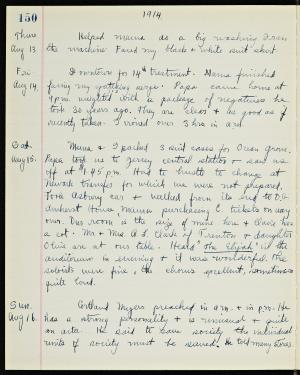 150
1914
Thurs
Aug 13.
Helped mama do a big washing. Ironed
the machine. Faced my black & white suit skirt
Fri
Aug 14.
Downtown for 14th treatment. Mama finished
facing my skirt. Papa came home at
9 p.m. weighted with a package of negatives he
took 30 years ago. They are clear & as good as if
recently taken. I ironed over 3 hrs in a.m.
Sat.
Aug 15.
Mama & I packed 3 suit cases for Ocean Grove.
Papa took us to Jersey Central station & saw us
off at 1:45 p.m. Had to hustle to change at
Newark transfer for which we were not prepared.
Took Asbury car & walked from its end to
Amherst House. Mama purchasing tickets on way
over. Our room is the size of mine here & has
a cot. Mr & Mrs. A. S. Clark of Trenton & daughter
Olive are at our table. Heard "The Elijah" in the
auditorium in evening & it was wonderful. The
soloists were fine, the chorus excellent, sometimes
quite loud.
Sun.
Aug 16.
Cortland Myers preached in a.m. & in p.m. He
has a strong personality & is unusual & quite
an actor. He said to save society the individual
units of society must be saved. He told many